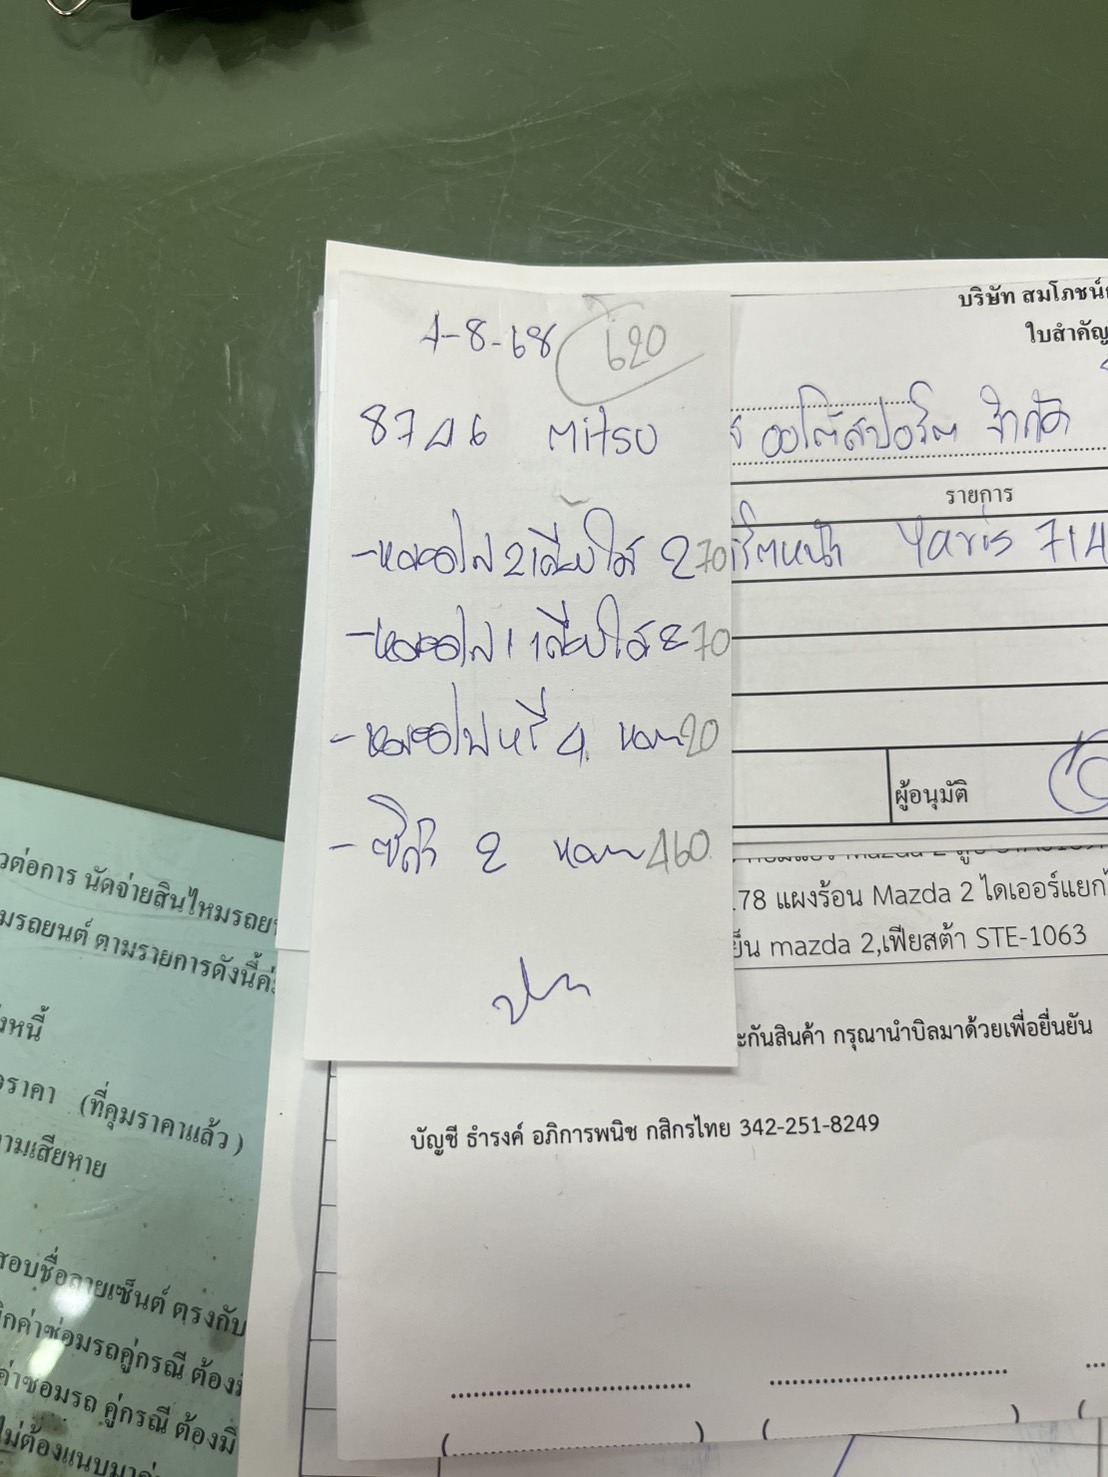 4-8-68 620
8746 Mitsu
-หลอดไฟ 2 เสียบใส 2 70
-หลอดไฟ 1 เสียบใส 2 70
-หลอดไฟหรี่ 4 หลอด 20
- ซีล่า 2 หลอด 460
บริษัท สมโภชน์
ใบสำคัญ
ออโต้สปอร์ต จำกัด
รายการ
หน้า Yaris 714
ผู้อนุมัติ
78 แผงร้อน Mazda 2 ไดเออร์แยก
ย็น mazda 2,เฟียสต้า STE-1063
ะกันสินค้า กรุณานำบิลมาด้วยเพื่อยื่นยัน
บัญชี ธำรงค์ อภิการพนิช กสิกรไทย 342-251-8249
วต่อการ นัดจ่ายสินไหมรถย
มรถยนต์ ตามรายการดังนี้ค่
งหนี้
ราคา (ที่คุมราคาแล้ว)
ามเสียหาย
สอบชื่อลายเซ็นต์ ตรงกับ
กค่าซ่อมรถคู่กรณี ต้องมี
ค่าซ่อมรถ คู่กรณี ต้องมี
ไม่ต้องแนบมา